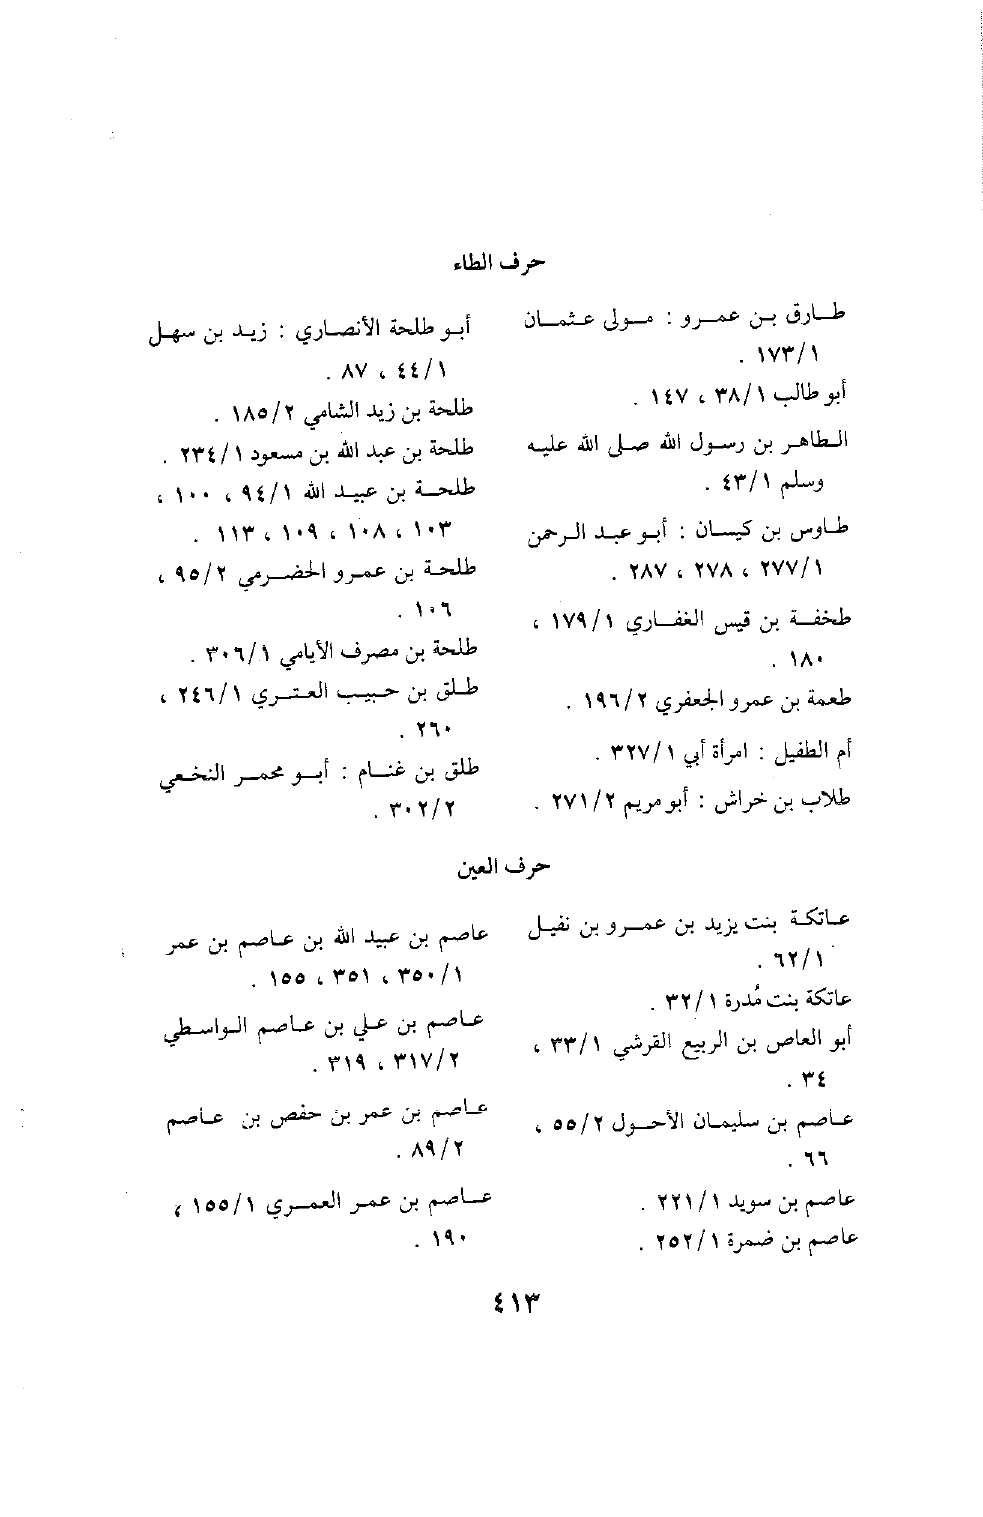 حرف الطاء
طارق بن عمرو : مولى عثمان
١٧٣/١ .
أبو طالب ٣٨/١ ، ١٤٧ .
الطاهر بن رسول الله صلى الله عليه
وسلم ٤٣/١ .
طاوس بن كيسان : أبو عبد الرحمن
٢٧٧/١ ، ٢٧٨ ، ٢٨٧ .
طخفة بن قيس الغفاري ١٧٩/١ ،
١٨٠ .
طعمة بن عمرو الجعفري ١٩٦/٢ .
أم الطفيل : امرأة أبي ٣٢٧/١ .
طلاب بن خراش : أبو مريم ٢٧١/٢ .
أبو طلحة الأنصاري : زيد بن سهل
٤٤/١ ، ٨٧ .
طلحة بن زيد الشامي ١٨٥/٢ .
طلحة بن عبد الله بن مسعود ٢٣٤/١ .
طلحة بن عبيد الله ٩٤/١ ، ١٠٠ ،
١٠٣ ، ١٠٨ ، ١٠٩ ، ١١٣ .
طلحة بن عمرو الحضرمي ٩٥/٢ ،
١٠٦ .
طلحة بن مصرف الأيامي ٣٠٦/١ .
طلق بن حبيب العتري ٢٤٦/١ ،
٢٦٠ .
طلق بن غنام : أبو محمر النخعي
٣٠٢/٢ .
حرف العين
عاتكة بنت يزيد بن عمرو بن نفيل
٦٢/١ .
عاتكة بنت مُدرة ٣٢/١ .
أبو العاص بن الربيع القرشي ٣٣/١ ،
٣٤ .
عاصم بن سليمان الأحول ٥٥/٢ ،
٦٦ .
عاصم بن سويد ٢٢١/١ .
عاصم بن ضمرة ٢٥٢/١ .
عاصم بن عبيد الله بن عاصم بن عمر
٣٥٠/١ ، ٣٥١ ، ١٥٥ .
عاصم بن علي بن عاصم الواسطي
٣١٧/٢ ، ٣١٩ .
عاصم بن عمر بن حفص بن عاصم
٨٩/٢ .
عاصم بن عمر العمري ١٥٥/١ ،
١٩٠ .
٤١٣